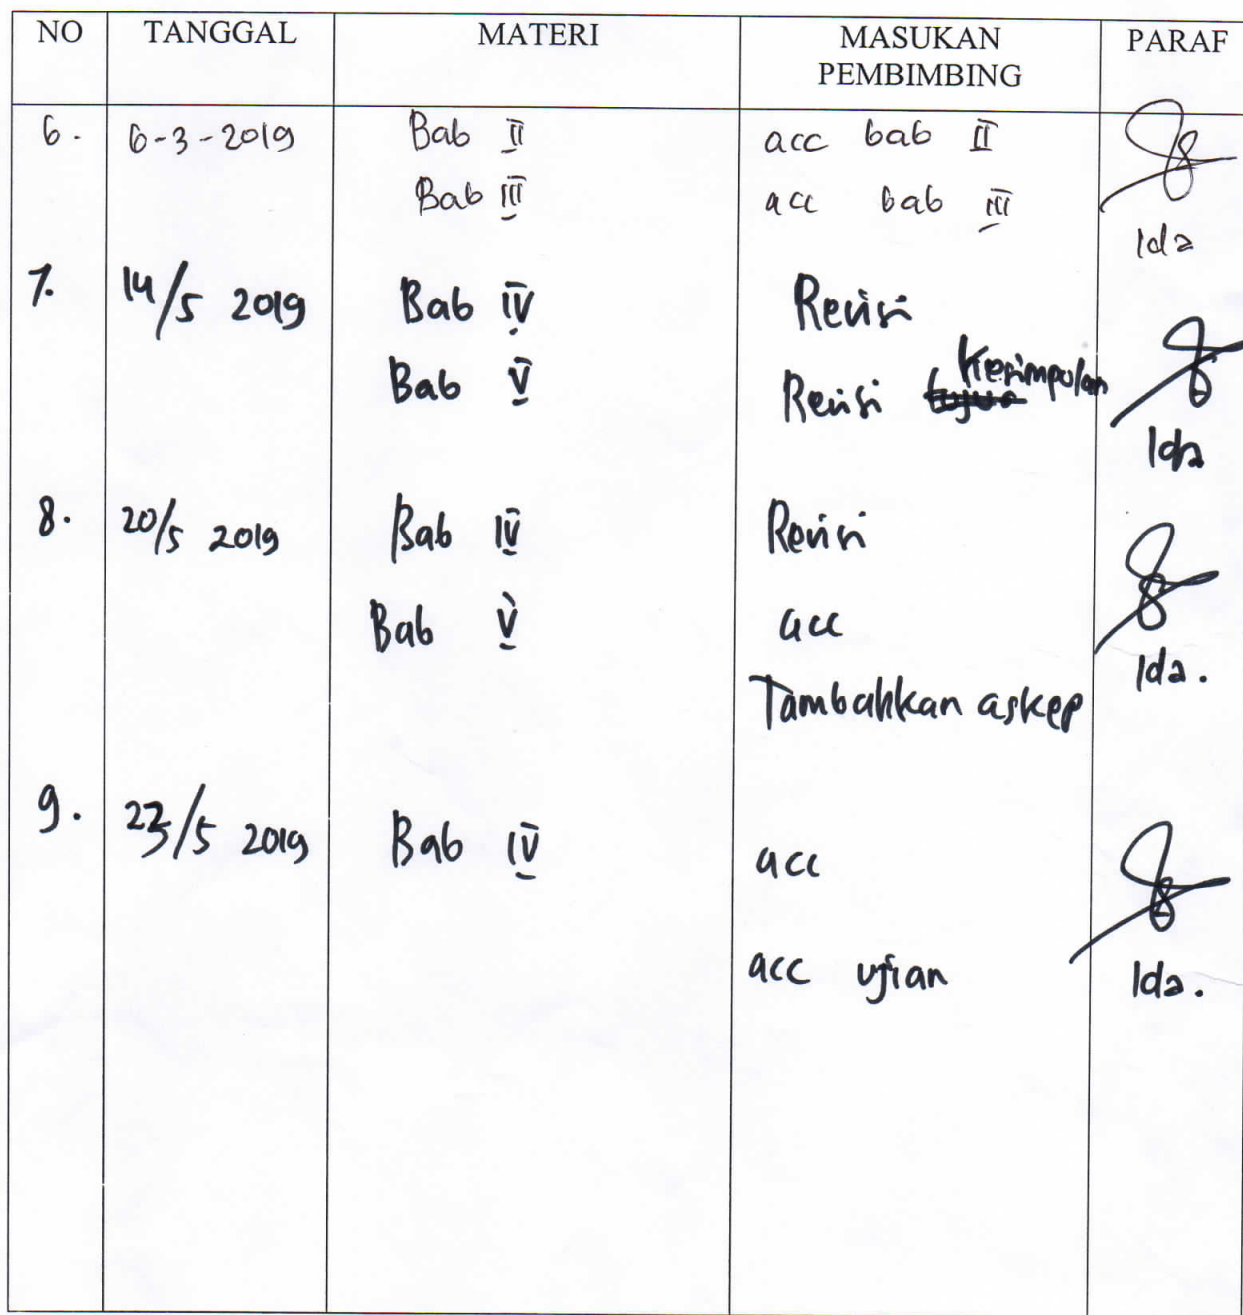 NO TANGGAL MATERI MASUKAN PEMBIMBING PARAF
6. 6-3-2019 Bab II acc bab II
Bab III acc bab III
Ida
7. 14/5 2019 Bab IV Revisi
Bab V Revisi Kesimpulan
Ida
8. 20/5 2019 Bab IV Revisi
Bab V acc
Ida.
Tambahkan askep
9. 23/5 2019 Bab IV acc
acc ujian Ida.